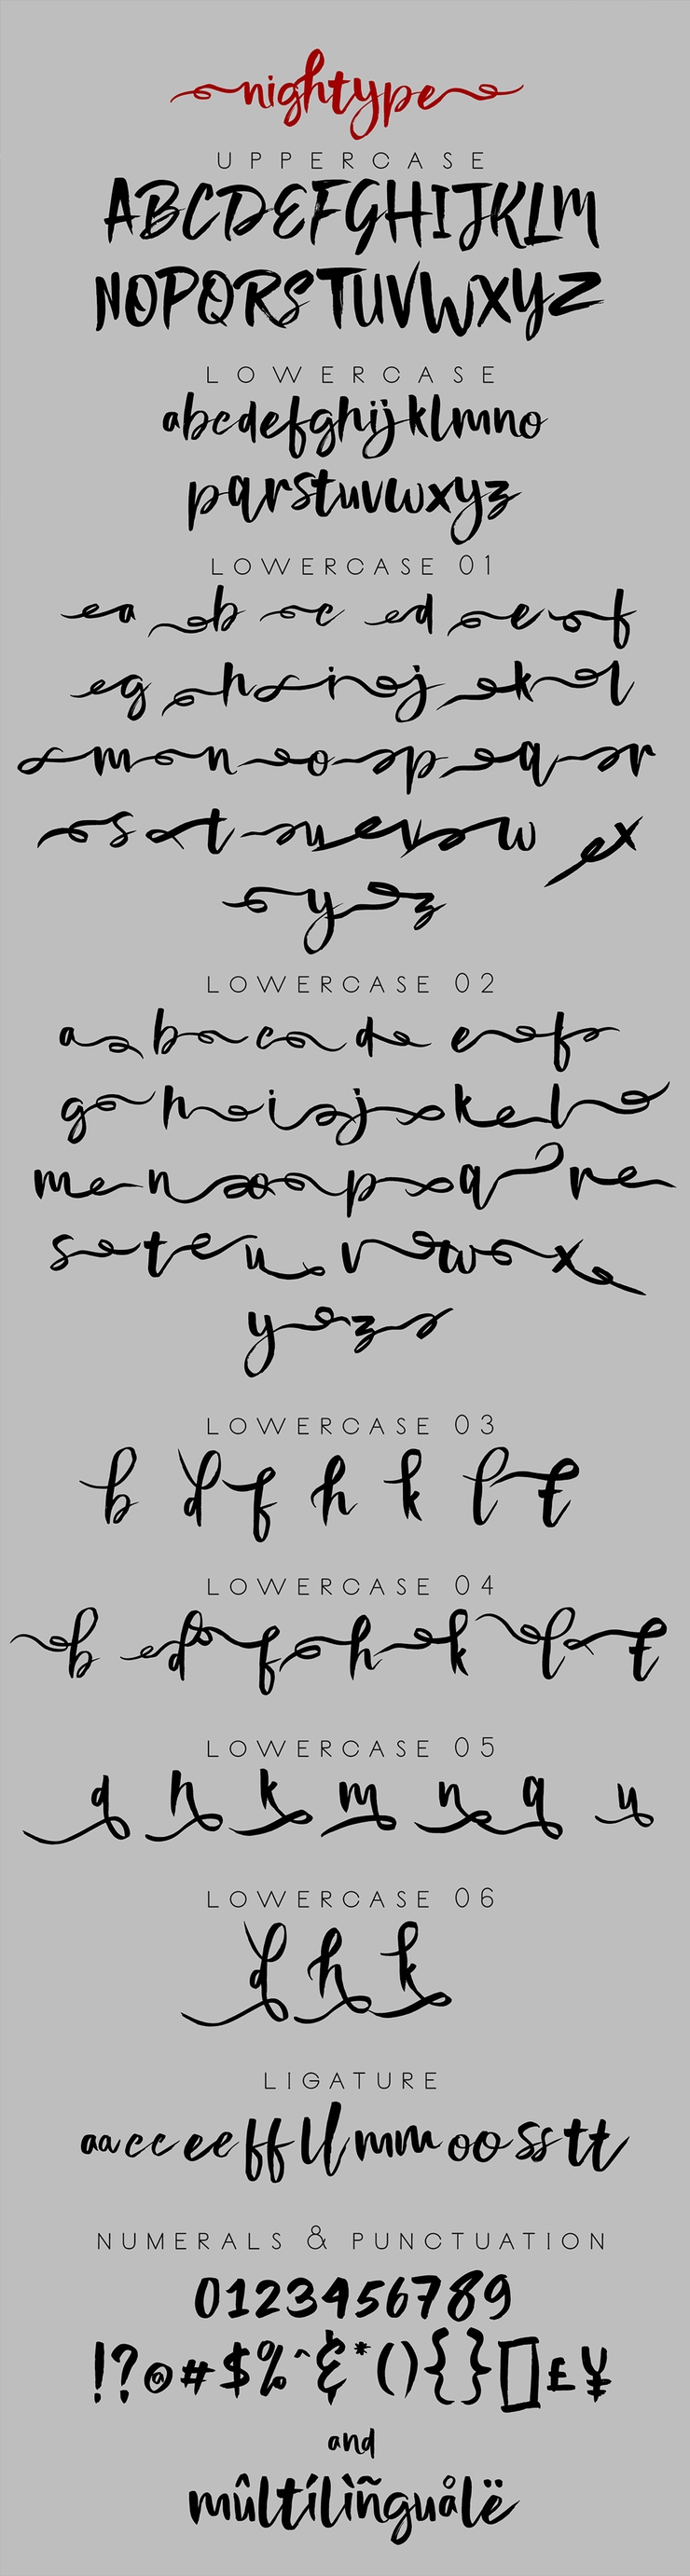 nightype
UPPERCASE
ABCDEFGHIJKLM
NOPQRSTUVWXYZ
LOWERCASE
abcdefghijklmno
pqrstuvwxyz
LOWERCASE 01
a b c d e f
g h i j k l
m n o p q r
s t u v w x
y z
LOWERCASE 02
a b c d e f
g h i j k l
m n o p q r
s t u v w x
y z
LOWERCASE 03
b d f h k l t
LOWERCASE 04
b d f h k l t
LOWERCASE 05
a h k m n q u
LOWERCASE 06
d h k
LIGATURE
aa cc ee ff ll mm oo ss tt
NUMERALS & PUNCTUATION
0123456789
!?@#$%^&*(){}[]£¥
and
mûltílìñguålë